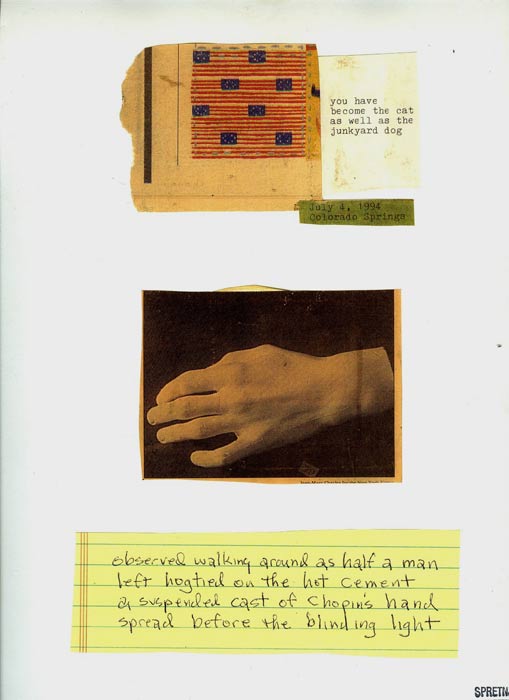 you have
become the cat
as well as the
junkyard dog
July 4, 1994
Colorado Springs
observed walking around as half a man
left hogtied on the hot cement
a suspended cast of Chopin's hand
spread before the blinding light
SPRETN